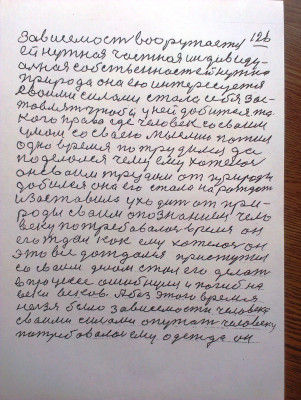 126
Зависимост вооружает
ей нужная частная индивиду-
альная собственность ей нужна
природа она ею интересуется
своими силами стало себя зас-
тавлят чтобы у ней добится та-
кого права где человек со своим
умом со своею мыслию пожил
одно время потрудился да
поделался чему ему хотелос
он своим трудом от природы
добился она его стала нарождат
и заставила уходит от при-
роды своим опознанием чело
веку потребовалос время он
его ждал как ему хотелос он
это все дождался приступил
со своим днем стал его делат
в процессе ошибнулся и погиб на
веки веков. А без этого время
нелзя было зависимости человека
своими силами опутат человеку
потребовалос ему одежда он